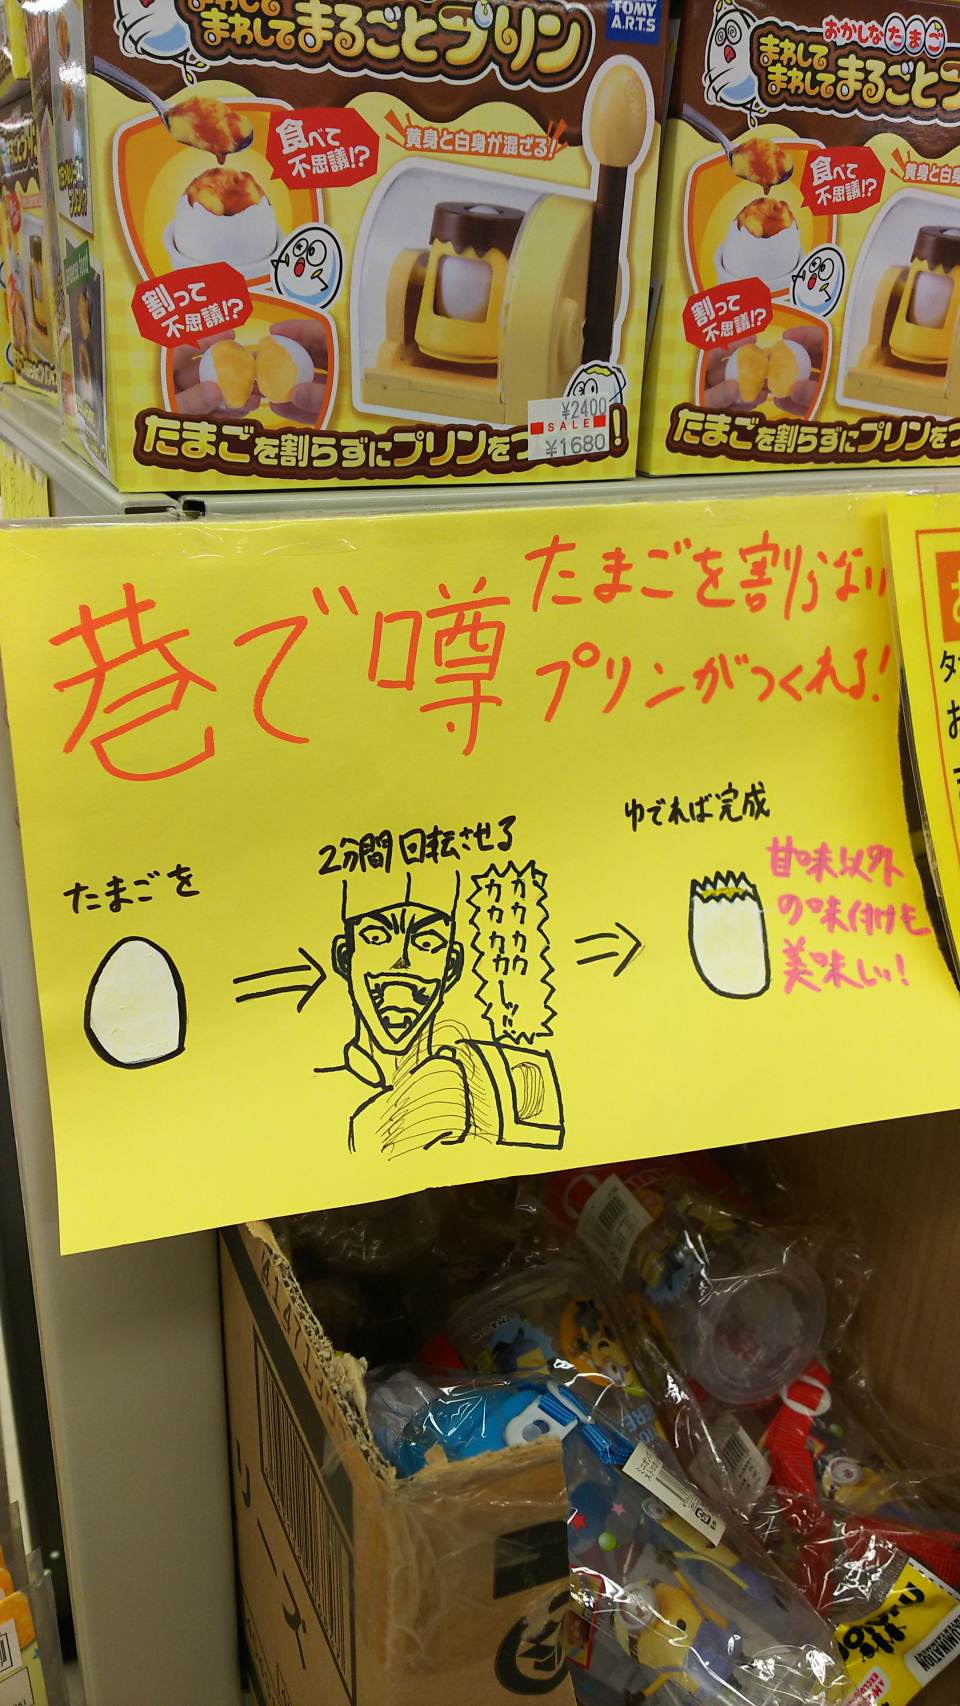 まわして
まわしてまるごとプリン
TOMY
A.R.T.S
食べて
不思議!?
黄身と白身が混ざる!
割って
不思議!?
¥2400
SALE
¥1680
たまごを割らずにプリンをつ
おかしなたまご
まわして
まわしてまるごと
食べて
不思議!?
黄身と白身
割って
不思議!?
たまごを割らずにプリンを
巷で噂
たまごを割らない
プリンがつくれる!
たまごを
2分間回転させる
カカカカカ
カカカカカーッ!!
ゆでれば完成
甘味以外
の味付けも
美味しい!